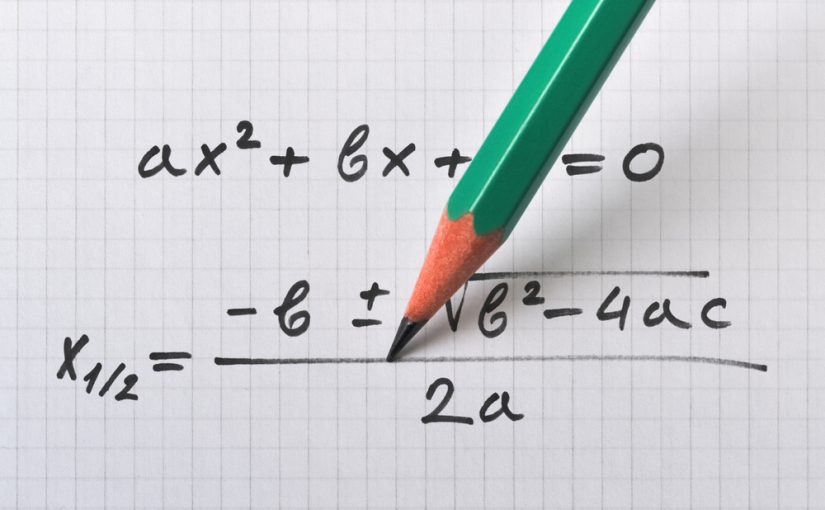 ax² + bx + = 0
x₁/₂ = -b ± √b²-4ac
2a